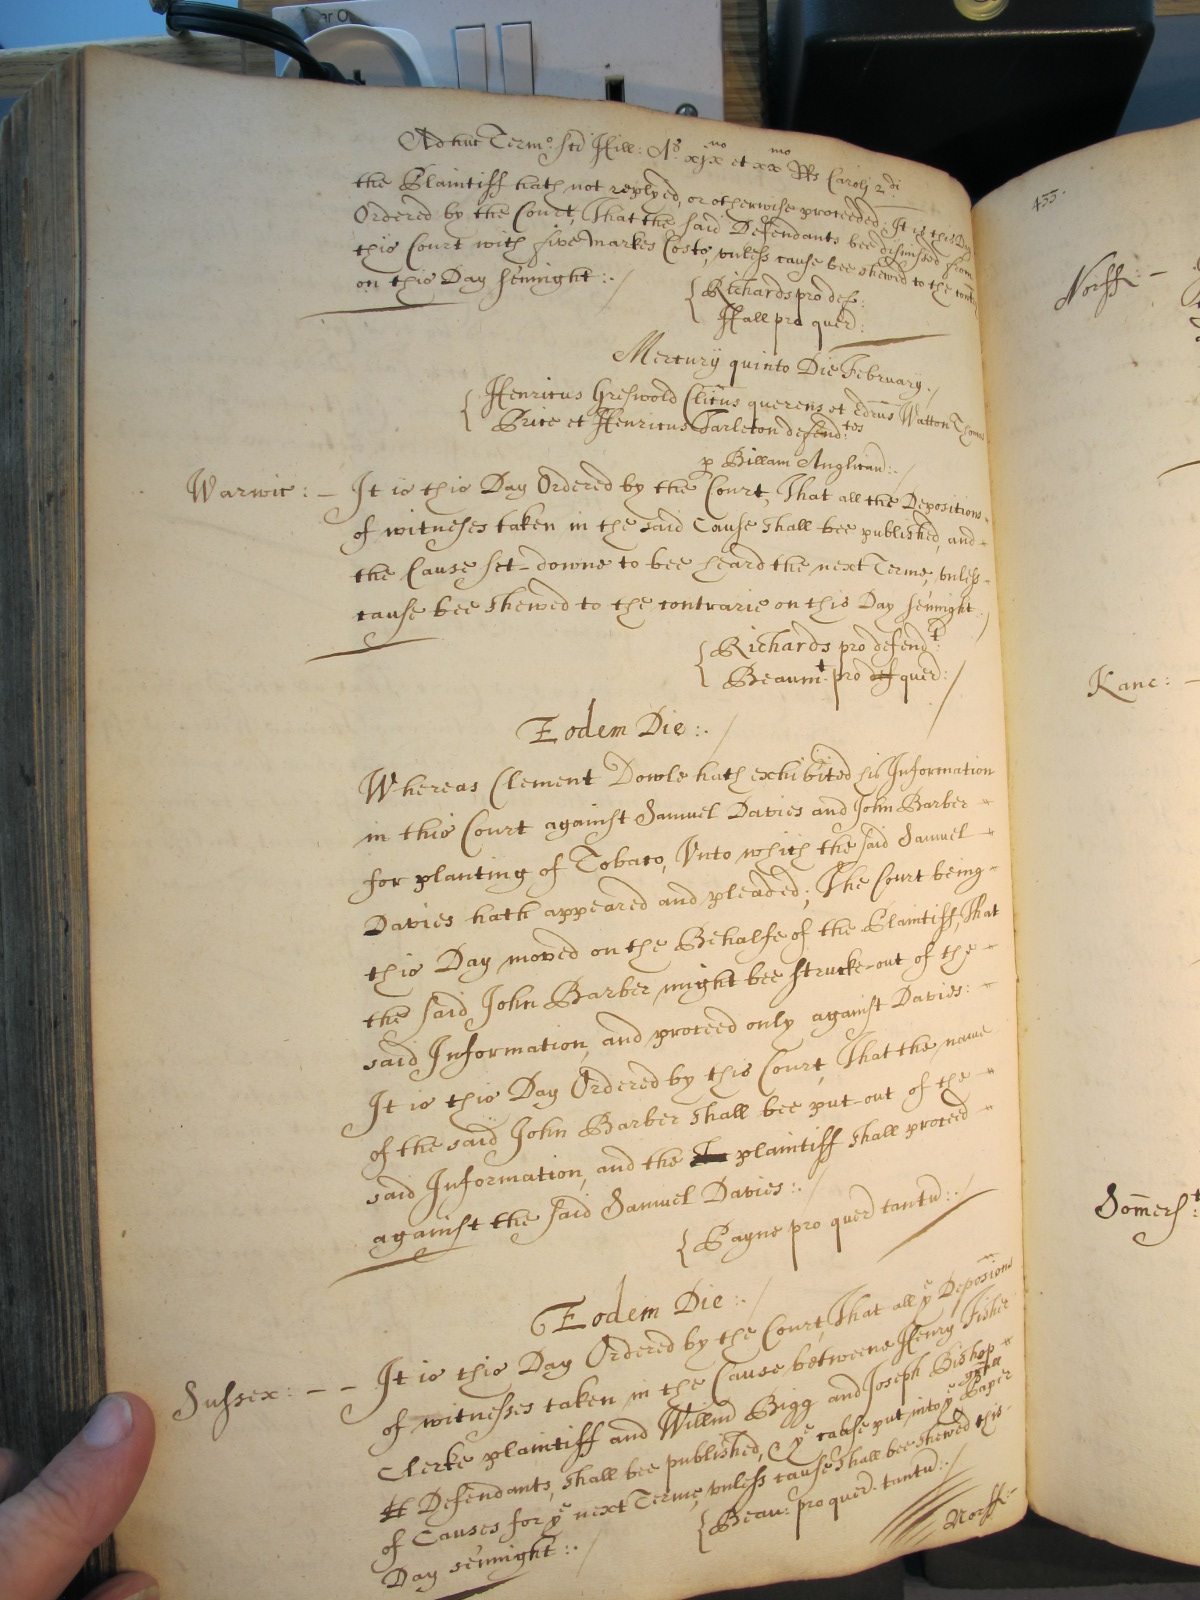 Adhuc Term:o Scd Hill: A:o xjx no et xx mo Rs Caroli 2 di
the Plaintiff hath not replyed, or otherwise proceeded: It is this Day
Ordered by the Court, That the said Defendants bee dismissed from
this Court with five Markes Costs, vnless cause bee shewed to the contr
on this Day sennight :.
{ Richards pro def:
Hall pro quer:
Mercurij quinto Die February.
{ Henricus Greswold Clicus querens et Edrus Watton Thomas
Price et Henricus Tarleton defend:tes
p Billam Anglican:.
Warwic: – It is this Day Ordered by the Court, That all the Depositions
of witnesses taken in the said Cause shall bee published, and
the Cause set-downe to bee heard the next Terme, vnless
cause bee shewed to the contrarie on this Day sennight.
{ Richards pro defend:t
Beaum:t pro def quer:
Eodem Die :.
Whereas Clement Dowle hath exhibited his Information
in this Court against Samuel Davies and John Barber
for planting of Tobaco, Vnto which the said Samuel
Davies hath appeared and pleaded; The Court being
this Day moved on the Behalfe of the Plaintiff, That
the said John Barber might bee strucke-out of the
said Information, and proceed only against Davies:
It is this Day Ordered by this Court, That the name
of the said John Barber shall bee put-out of the
said Information, and the plaintiff shall proceed
against the said Samuel Davies :.
{ Payne pro quer tantu :.
Eodem Die :.
Sussex: – – It is this Day Ordered by the Court, That all ye Deposions
of witnesses taken in the Cause betweene Henry Fisher
Clerke plaintiff and Willm Bigg and Joseph Bishop
Defendants, shall bee published, & ye cause put into ye Paper
of Causes for ye next Terme, vnless cause shall bee shewed this
Day sennight :.
{ Beau: pro quer. tantu :.
Norff:
433.
Norff: –
Kanc: –
Somerst: